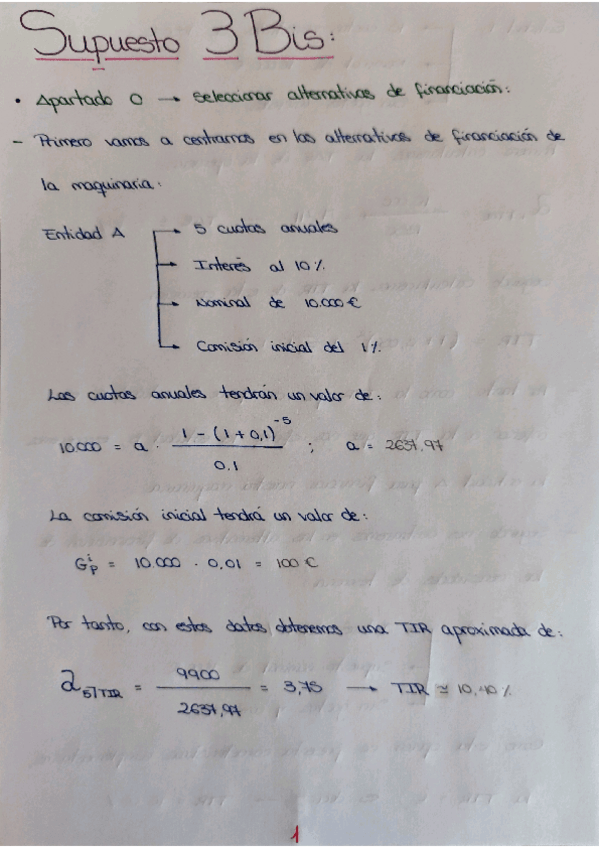 Supuesto 3 Bis:
• Apartado 0 → Seleccionar alternativas de financiación:
- Primero vamos a centrarnos en las alternativas de financiación de
la maquinaria:
Entidad A → 5 cuotas anuales
→ Interés al 10%
→ Nominal de 10.000 €
→ Comisión inicial del 1%
Las cuotas anuales tendrán un valor de:
10.000 = a · (1 - (1 + 0,1)^-5) / 0.1 ; a = 2637,97
La comisión inicial tendrá un valor de:
G_p^i = 10.000 · 0,01 = 100 €
Por tanto, con estos datos obtenemos una TIR aproximada de:
a_5|TIR = 9900 / 2637,97 = 3,75 → TIR ≃ 10,40%
1